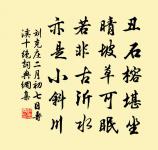 丑石榕堪坐
晴坡草可眠
若非古沂水
亦是小斜川
刘克庄二月初七日寿
溪十绝词典网集